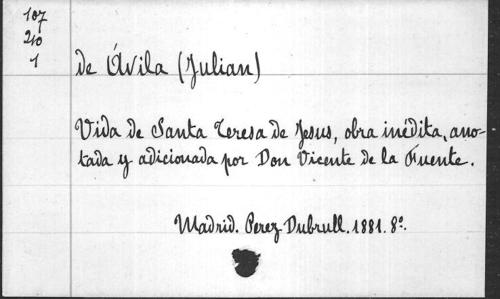 107
210
1
de Ávila (Julian)
Vida de Santa Teresa de Jesus, obra inédita, ano-
tada y adicionada por Don Vicente de la Fuente.
Madrid. Perez Dubrull. 1881. 8º.